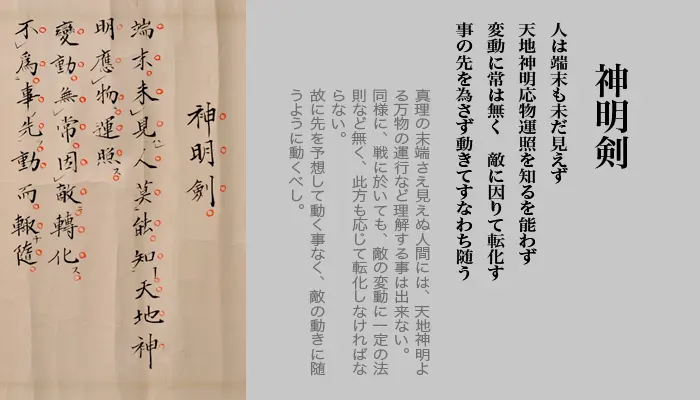 神明剣
人は端末も未だ見えず
天地神明応物運照を知るを能わず
変動に常は無く　敵に因りて転化す
事の先を為さず動きてすなわち随う
真理の末端さえ見えぬ人間には、天地神明よ
る万物の運行など理解する事は出来ない。
同様に、戦に於いても、敵の変動に一定の法
則など無く、此方も応じて転化しなければな
らない。
故に先を予想して動く事なく、敵の動きに随
うように動くべし。
神明劍
端末未見人莫能知天地神
明應物運照ス
變動無常因敵轉化ス
不為事先動而輙隨